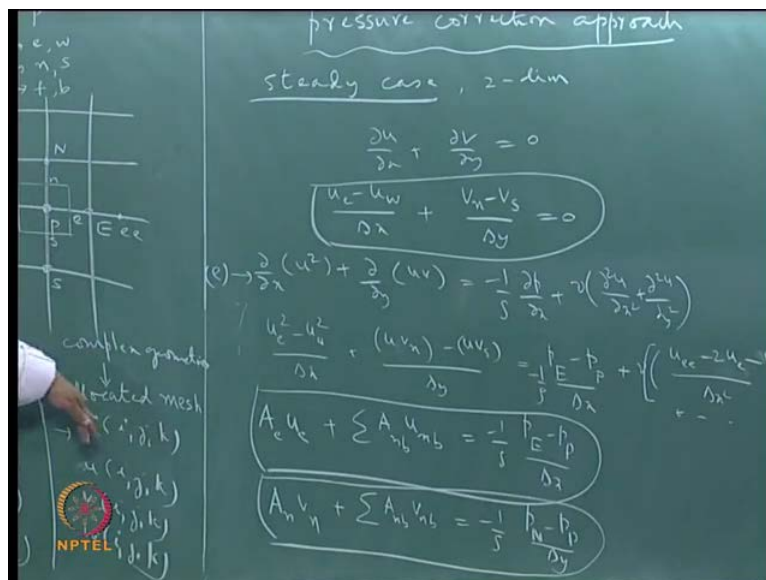 pressure correction approach
steady case, 2-dim
∂u/∂x + ∂v/∂y = 0
(u_e - u_w)/Δx + (v_n - v_s)/Δy = 0
(e) → ∂/∂x (u²) + ∂/∂y (uv) = -1/ρ ∂p/∂x + ν(∂²u/∂x² + ∂²u/∂y²)
(u_e² - u_w²)/Δx + ((u v_n) - (u v_s))/Δy = -1/ρ (p_E - p_P)/Δx + ν{(u_ee - 2u_e -
+ - .
A_e u_e + Σ A_nb u_nb = -1/ρ (p_E - p_P)/Δx
A_n v_n + Σ A_nb v_nb = -1/ρ (p_N - p_P)/Δy
P
, e, w
, n, s
→ t, b
N
n
P e E ee
s
S
complex geometries
↓
located mesh
→ (i, j, k)
u(i, j, k)
i, j, k)
j, k)
NPTEL